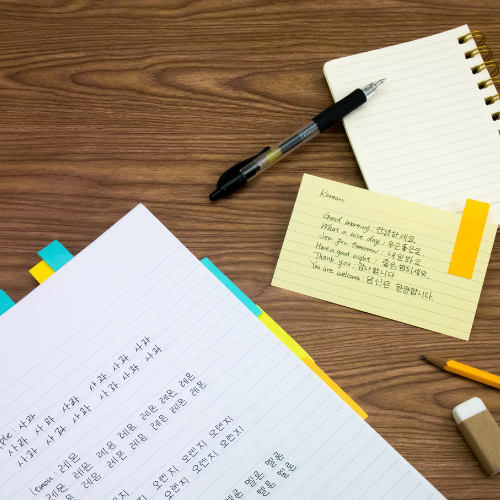 Korean
Good morning : 안녕하세요
Have a nice day : 좋은 날
See you tomorrow : 내일 봐요
Have a good night : 좋은 밤 되세요
Thank you : 감사합니다
You are welcome : 당신은 환영합니다
사과
사과 사과 사과 사과 사과 사과
사과 사과 사과 사과 사과 사과
lemon : 레몬
레몬 레몬 레몬 레몬 레몬 레몬
레몬 레몬 레몬 레몬 레몬 레몬
오렌지 오렌지 오렌지
오렌지 오렌지 오렌지
멜론 멜론
멜론 멜론